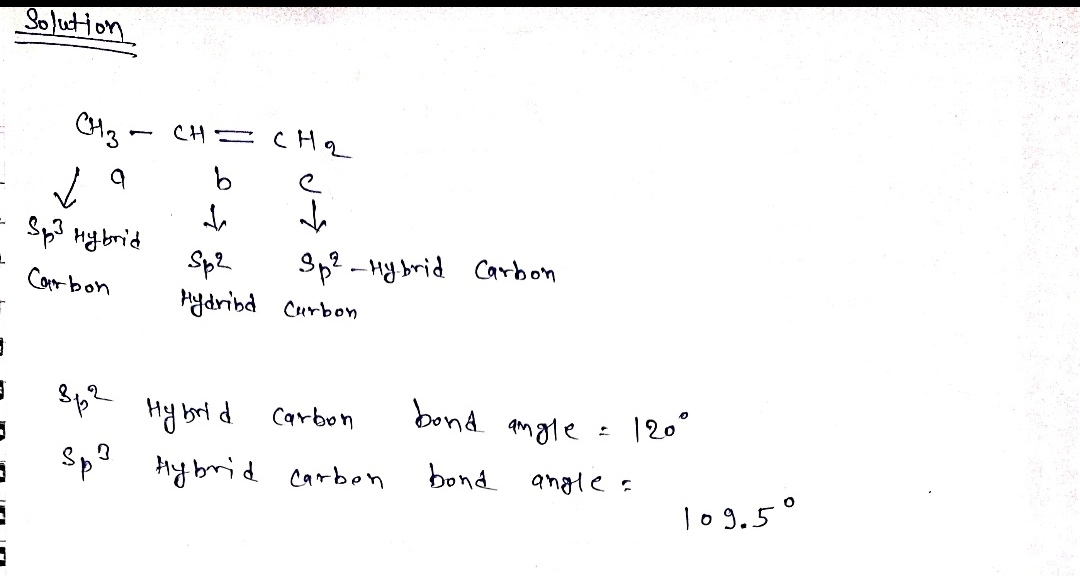 Solution
CH3 - CH = CH2
a b c
↓ ↓ ↓
Sp3 Hybrid Carbon
Sp2 Hydribd Carbon
Sp2 - Hybrid Carbon
Sp2 Hybrid Carbon bond angle = 120°
Sp3 Hybrid carbon bond angle =
109.5°